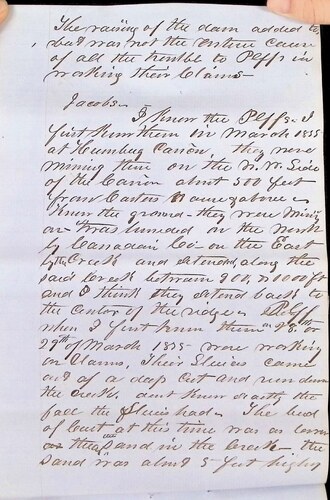 The raising of the dam added to,
but was not the entire cause
of all the trouble to Plffs in
working their Claims -
Jacobs -
I know the Plffs - I
first knew them in March 1855
at Humbug Cañon, they were
mining then on the N.W. Side
of the Cañon about 500 feet
from
Know the ground - they were mining
on - was bounded on the North
by Co - on the East
by the Creek and extend along the
said Creek between 900, & 1000 feet
and I think they extend back to
the center of the ridge - Plffs
when I first knew them 28th or
29th of March 1855 - were working
on Claims, Their Sluices came
out of a deep Cut and run down
the creek. dont know exactly the
fall the Sluices had - The bed
of Cut at this time was as low
as the Sand in the Creek - the
Sand was about 5 feet higher